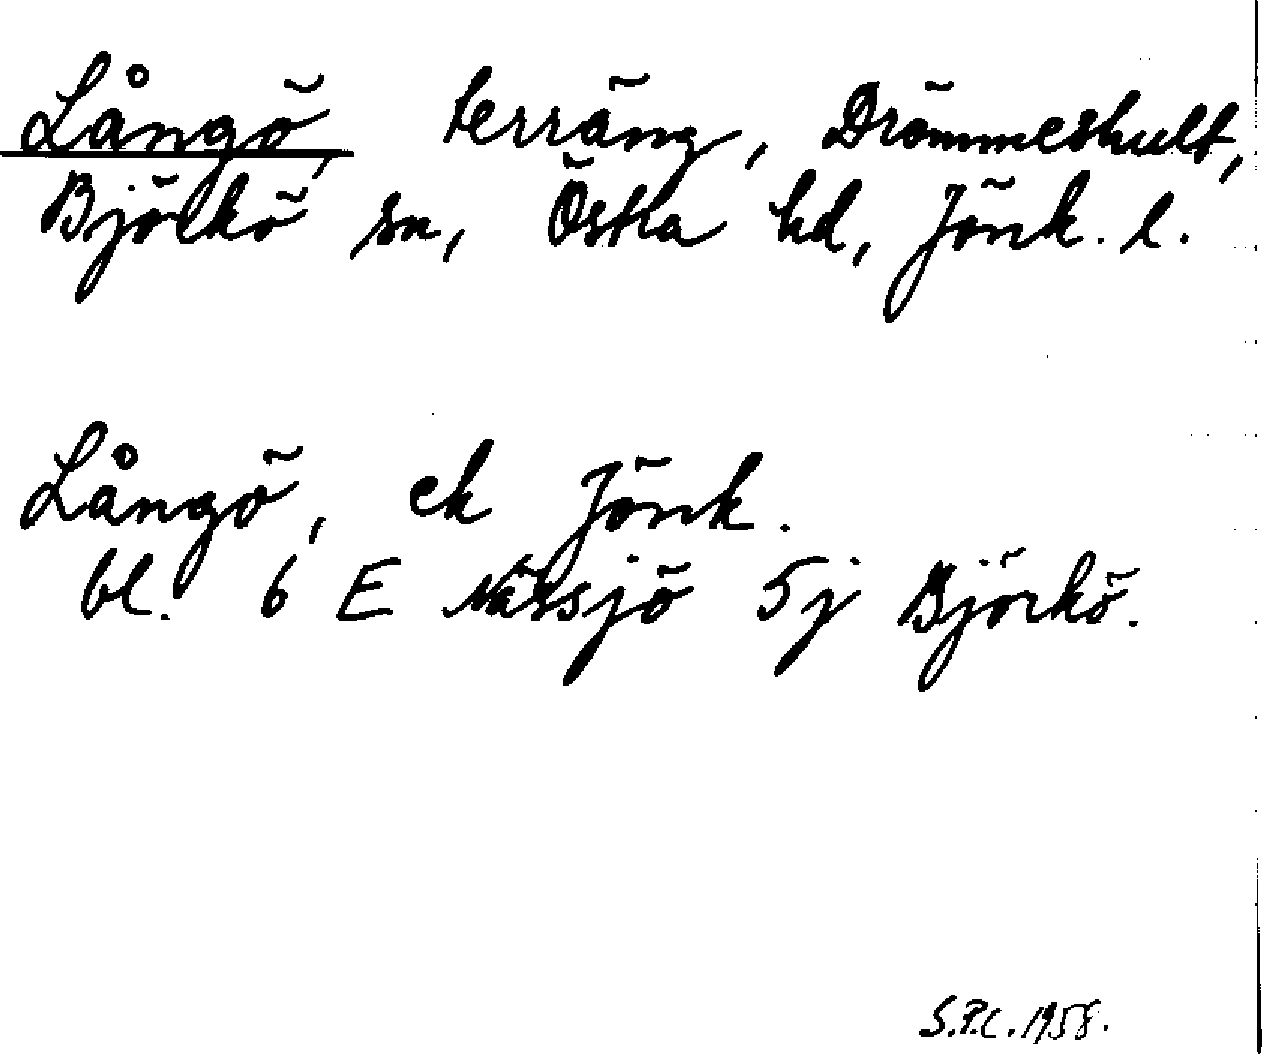 Långö, terräng, Drömmeshult,
Björkö sn, Östra hd, Jönk. l.
Långö, ek Jönk.
bl. 6 E Nässjö 5j Björkö.
S.P.C. 1958.